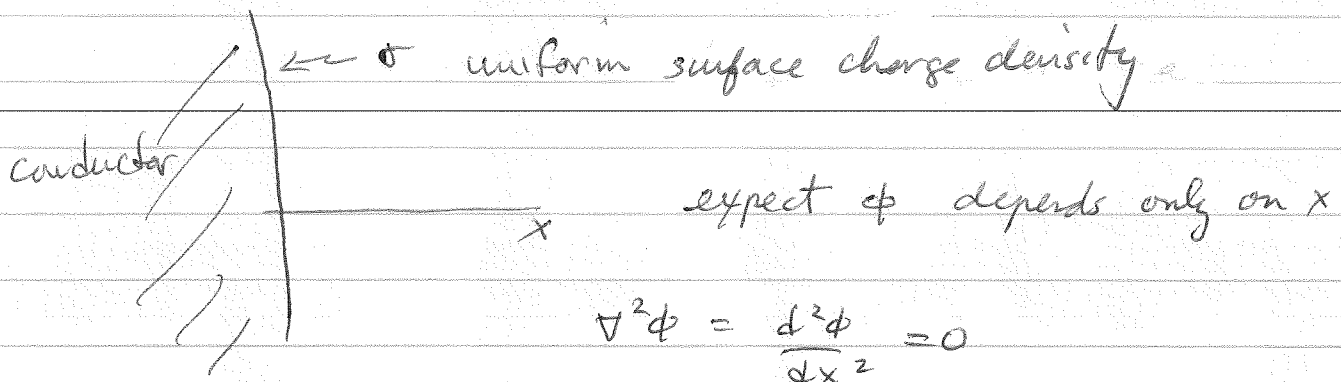 ← σ uniform surface charge density
conductor
expect ϕ depends only on x
x
∇²ϕ = d²ϕ/dx² = 0